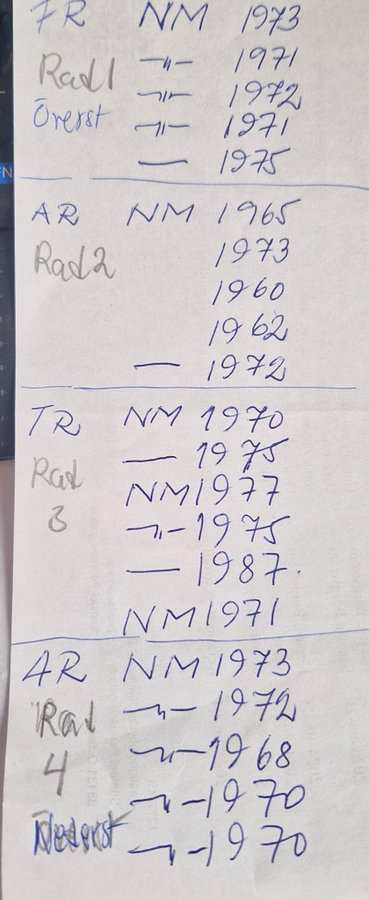 FR NM 1973
Rad 1 -"- 1971
-"- 1972
Överst -"- 1971
— 1975
AR NM 1965
Rad 2 1973
1960
1962
— 1972
TR NM 1970
— 1975
Rad NM 1977
3 -"- 1975
— 1987.
NM 1971
AR NM 1973
Rad -"- 1972
4 -"- 1968
-"- 1970
Nederst -"- 1970